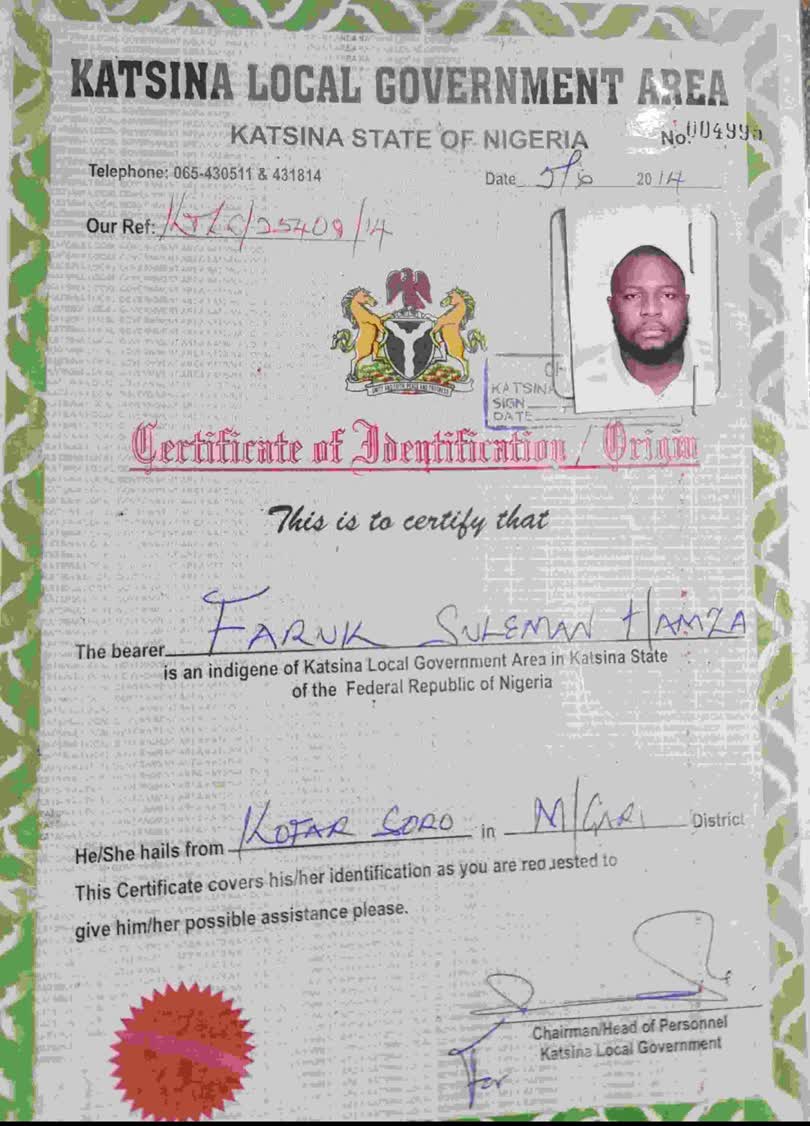 KATSINA LOCAL GOVERNMENT AREA
KATSINA STATE OF NIGERIA
No. 00499
Telephone: 065-430511 & 431814
Date 5/6 2014
Our Ref: KTLG/25409/14
KATSINA
SIGN
DATE
Certificate of Identification / Origin
This is to certify that
The bearer FARUK SULEMAN HAMZA
is an indigene of Katsina Local Government Area in Katsina State
of the Federal Republic of Nigeria
He/She hails from KOFAR SORO in M/GARI District
This Certificate covers his/her identification as you are requested to
give him/her possible assistance please.
Chairman/Head of Personnel
Katsina Local Government
For